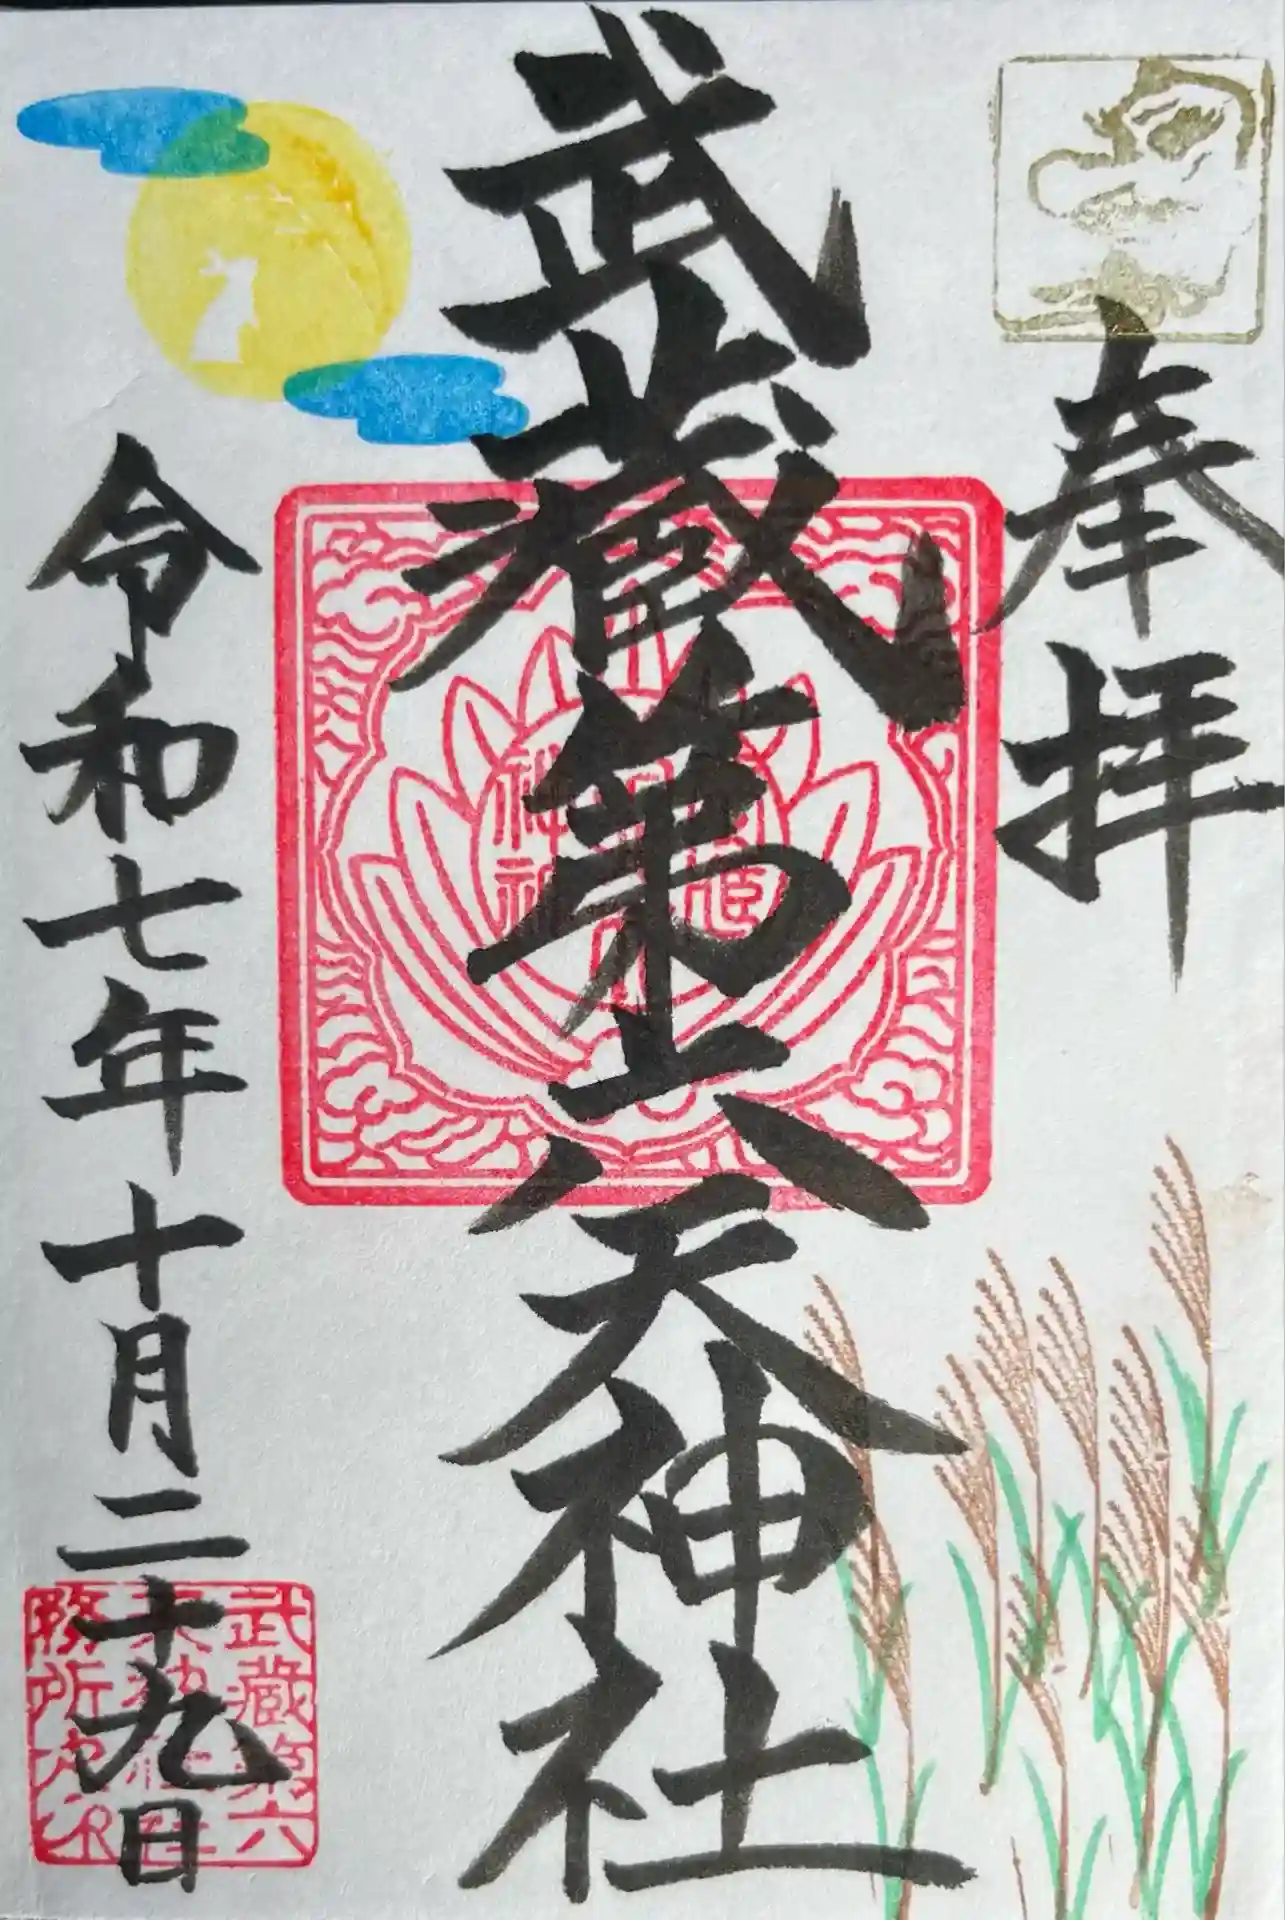 奉拝
武蔵第六天神社
令和七年十月二十九日
武蔵第六
天神社社
務所之印